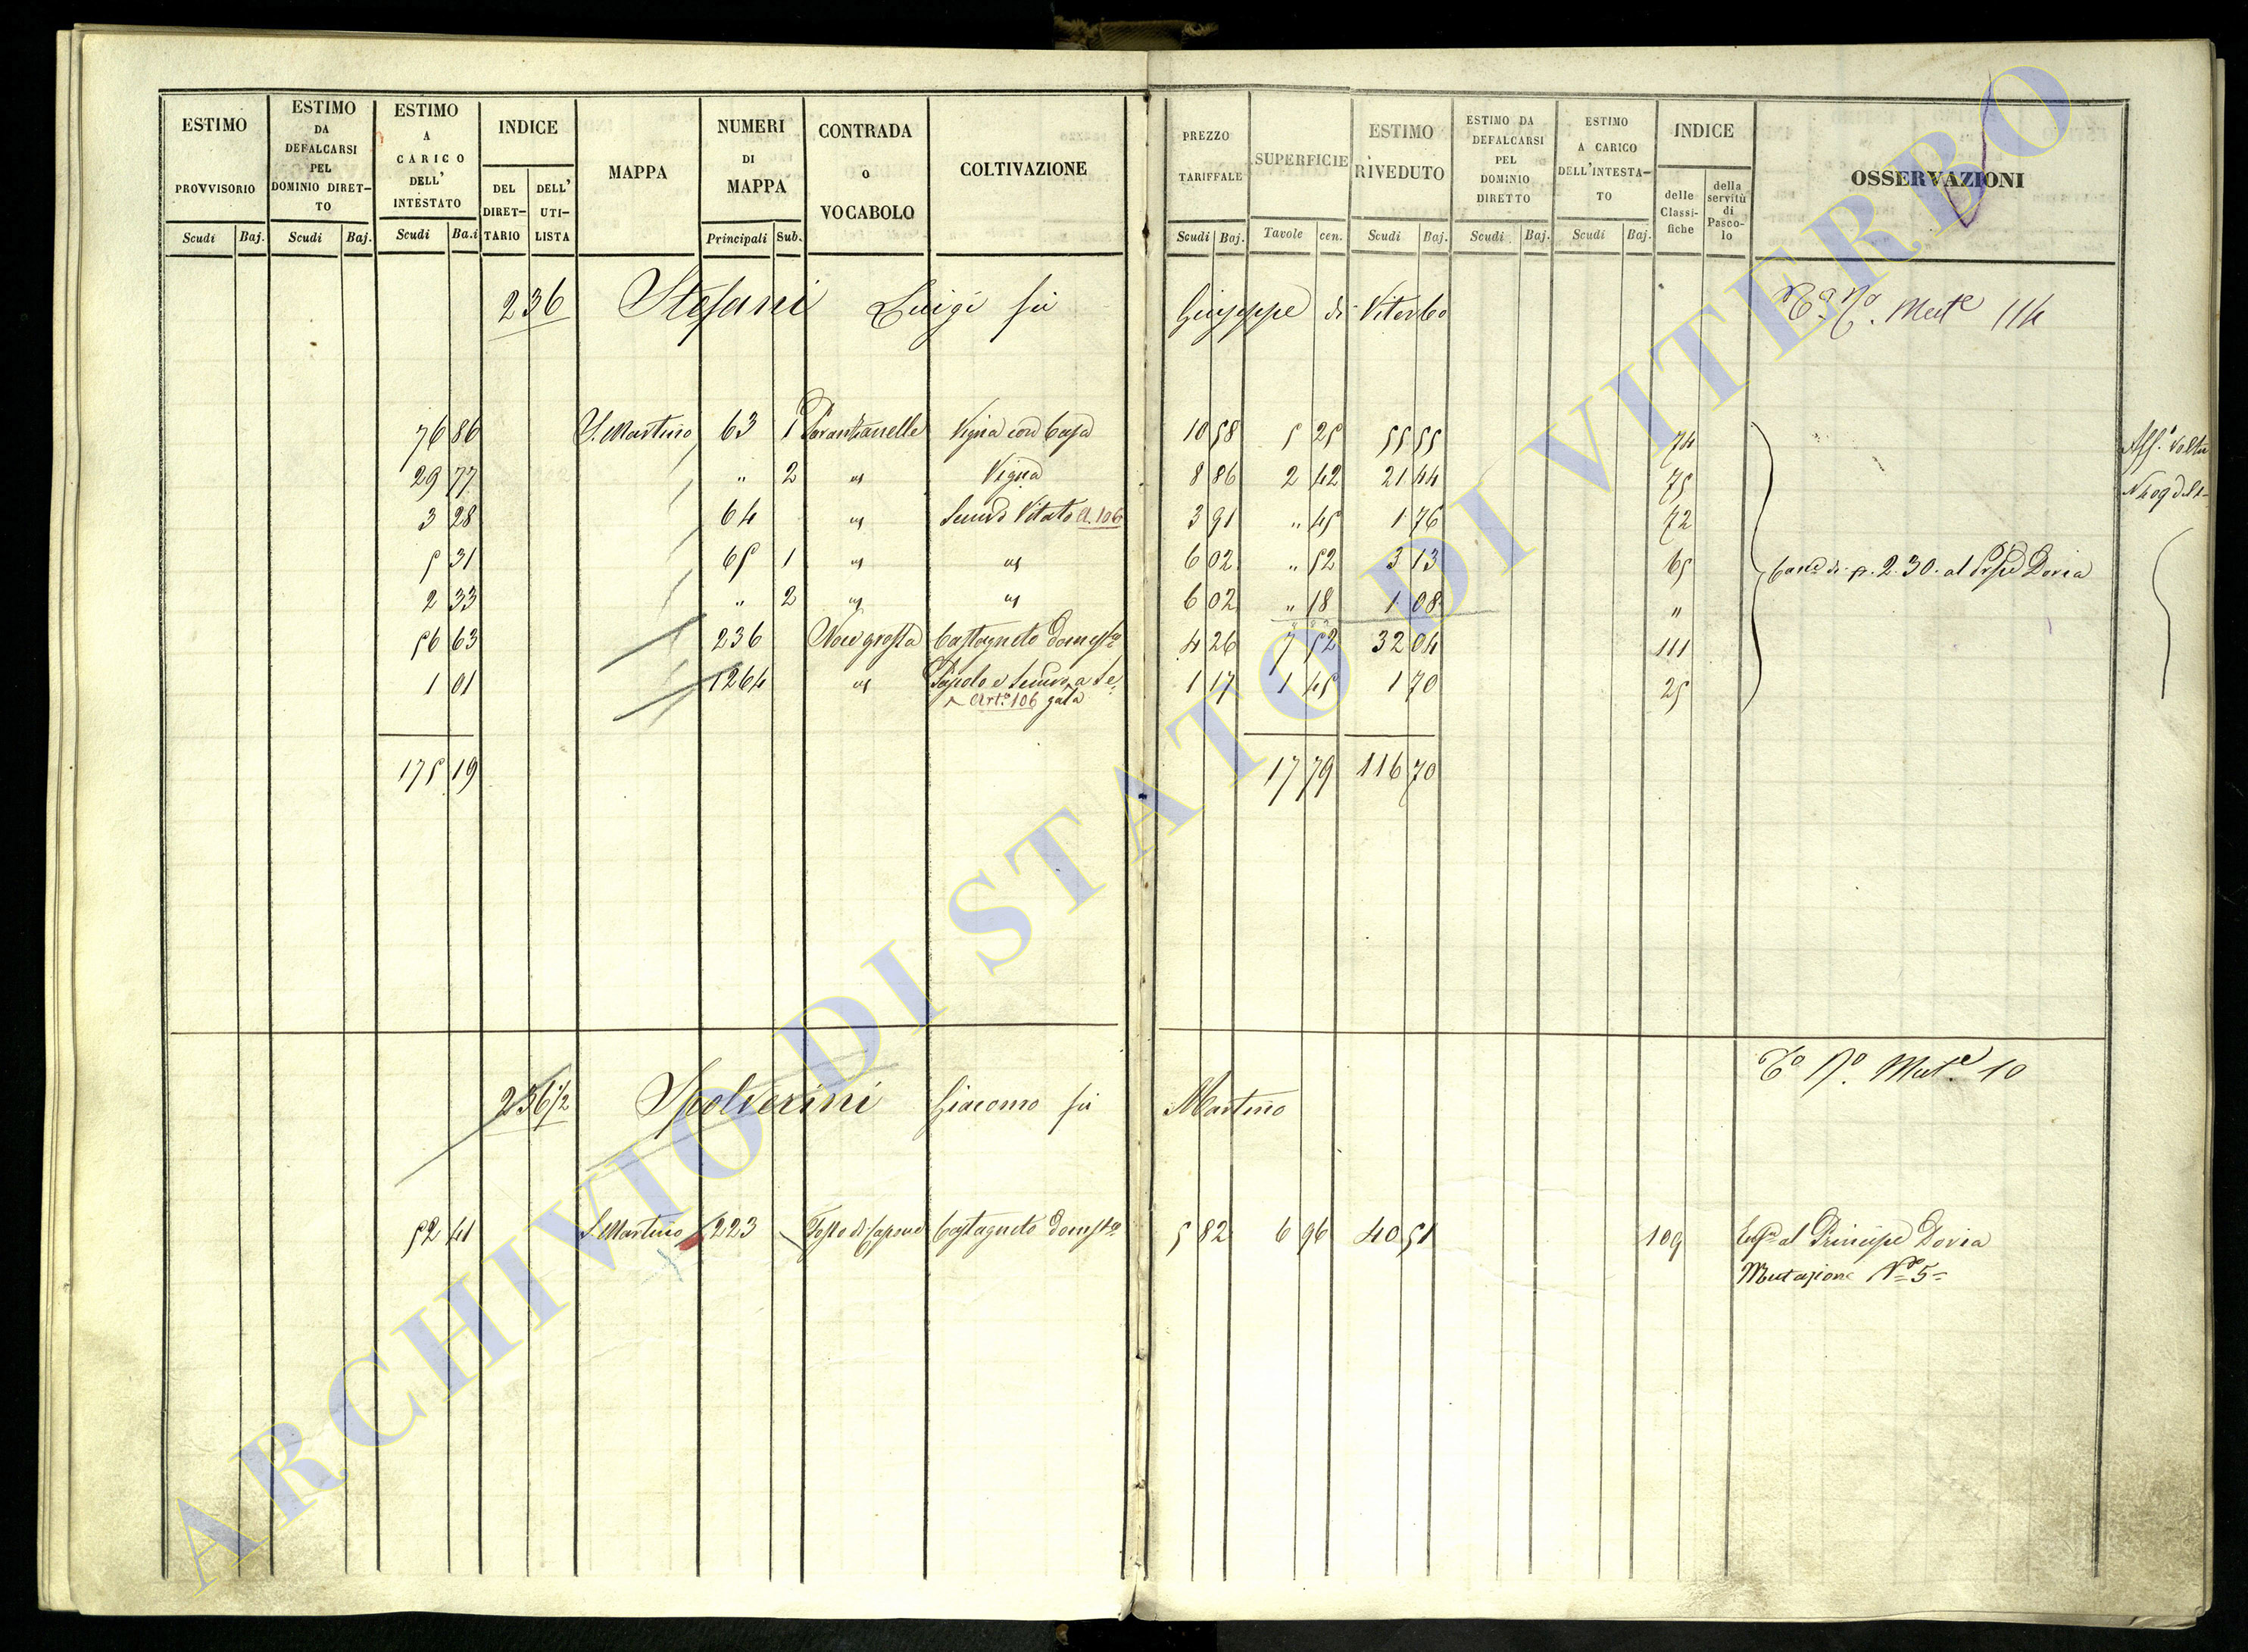 ESTIMO PROVVISORIO Scudi Baj.
ESTIMO DA DEFALCARSI PEL DOMINIO DIRET- TO Scudi Baj.
ESTIMO A CARICO DELL' INTESTATO Scudi Ba.i
INDICE DEL DIRET- TARIO DELL' UTI- LISTA
MAPPA
NUMERI DI MAPPA Principali Sub.
CONTRADA o VOCABOLO
COLTIVAZIONE
PREZZO TARIFFALE Scudi Baj.
SUPERFICIE Tavole cen.
ESTIMO RIVEDUTO Scudi Baj.
ESTIMO DA DEFALCARSI PEL DOMINIO DIRETTO Scudi Baj.
ESTIMO A CARICO DELL'INTESTA- TO Scudi Baj.
INDICE delle Classi- fiche della servitù di Pasco- lo
OSSERVAZIONI
236 Stefani Luigi fu Giuseppe di Viterbo Mut.e 114
76 86 S. Martino 63 1 Vigna con Casa 10 58 5 25 55 55 74
29 77 " 2 " Vigna 8 86 2 42 21 44 75
3 28 64 " Semvo Vitato A. 106 3 91 " 45 1 76 72
5 31 65 1 " " 6 02 " 52 3 13 65 di 2.30. al Doria
2 33 " 2 " " 6 02 " 18 1 08 "
56 63 236 Noce grossa Castagneto Domesto 4 26 7 52 32 04 111
1 01 1264 " 1 17 1 45 1 70 25
Art.o 106
175 19 17 79 116 70
236 1/2 Spolverini Giacomo fu Martino Mut.e 10
52 41 S. Martino 223 Castagneto Domesto 5 82 6 96 40 51 109 al Principe Doria
Mutazione No 5
ARCHIVIO DI STATO DI VITERBO